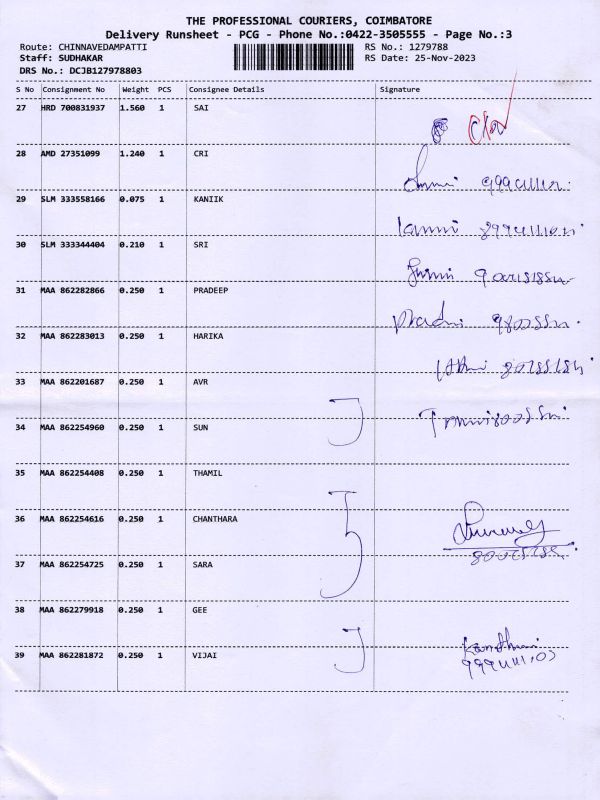 THE PROFESSIONAL COURIERS, COIMBATORE
Delivery Runsheet - PCG - Phone No.:0422-3505555 - Page No.:3
Route: CHINNAVEDAMPATTI RS No.: 1279788
Staff: SUDHAKAR RS Date: 25-Nov-2023
DRS No.: DCJB127978803
S No Consignment No Weight PCS Consignee Details Signature
27 HRD 700831937 1.560 1 SAI
28 AMD 27351099 1.240 1 CRI
29 SLM 333558166 0.075 1 KANIIK
30 SLM 333344404 0.210 1 SRI
31 MAA 862282866 0.250 1 PRADEEP
32 MAA 862283013 0.250 1 HARIKA
33 MAA 862201687 0.250 1 AVR
34 MAA 862254960 0.250 1 SUN
35 MAA 862254408 0.250 1 THAMIL
36 MAA 862254616 0.250 1 CHANTHARA
37 MAA 862254725 0.250 1 SARA
38 MAA 862279918 0.250 1 GEE
39 MAA 862281872 0.250 1 VIJAI